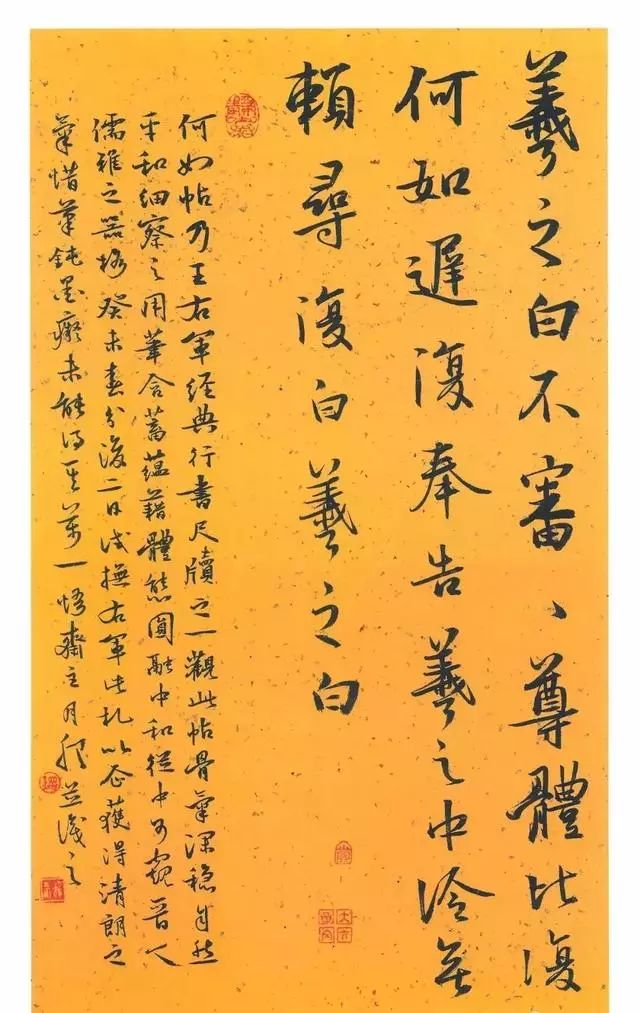 羲之白不審、尊體比復
何如遲復奉告羲之中冷無
賴尋復白羲之白
何如帖乃王右軍經典行書尺牘之一觀此帖骨氣深穩自然
平和細察之用筆含蓄蘊藉體態圓融中和從中可窺晉人
儒雅之器格癸未春分後二日試撫右軍此札以企獲得清朗之
氣惜筆鈍墨癡未能得其萬一悟齋主月並識之